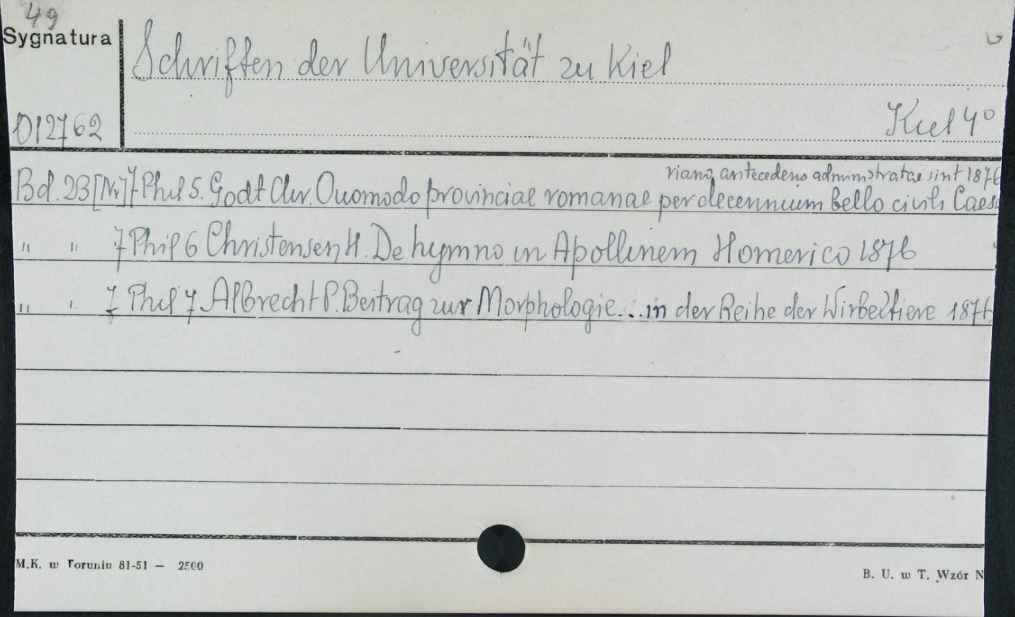 49
Sygnatura
Schriften der Universität zu Kiel
012762
Kiel 4°
viano antecedens administratae sint 1876
Bd. 23 [Nr] 7 Phil 5. Godt Chr. Quomodo provinciae romanae per decennium bello civili Caesa
" " 7 Phil 6 Christensen H. De hymno in Apollinem Homerico 1876
" " 7 Phil 7 Albrecht P. Beitrag zur Morphologie... in der Reihe der Wirbeltiere 1876
M.K. w Toruniu 81-51 — 2500
B. U. w T. Wzór N